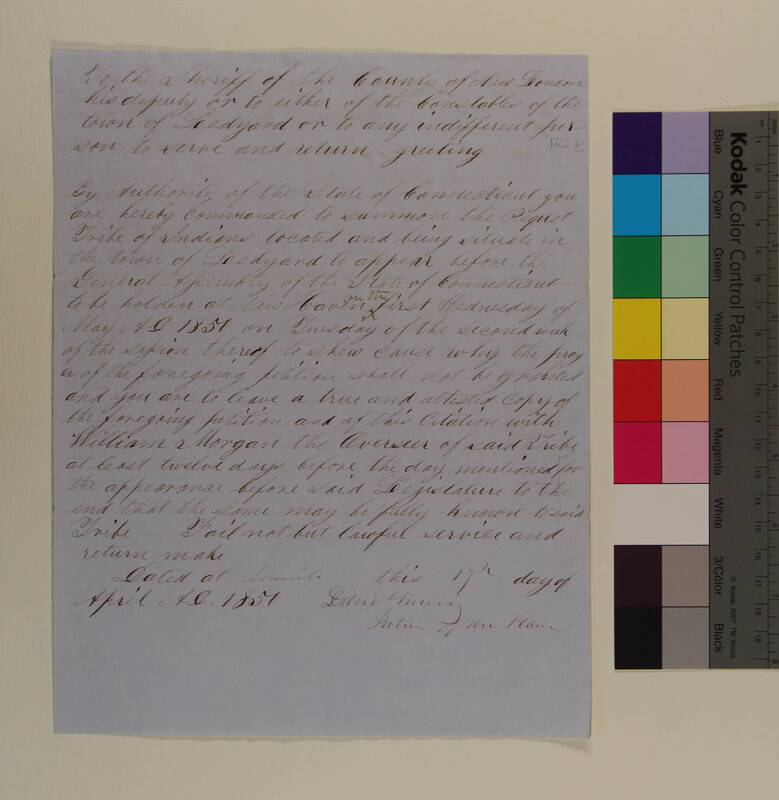 To the Sheriff of the County of New London
his deputy or to either of the Constables of the
town of Ledyard or to any indifferent per-
son to serve and return greeting
By Authority of the State of Connecticut you
are hereby commanded to summon the Pequot
Tribe of Indians located and being situate in
the town of Ledyard to appear before the
General Assembly of the State of Connecticut
to be holden at New Haven on the first Wednesday of
May A.D. 1851 on Tuesday of the second week
of the session thereof to shew cause why the pray
er of the foregoing petition shall not be granted
and you are to leave a true and attested copy of
the foregoing petition and of this Citation with
William Morgan the Overseer of said Tribe
at least twelve days before the day mentioned for
the appearance before said Legislature to the
end that the same may be fully known to said
Tribe Fail not but lawful service and
return make
Dated at this 17th day of
April A.D. 1851
Justice of the Peace
Kodak Color Control Patches
Blue
Cyan
Green
Yellow
Red
Magenta
White
3/Color
Black
© Kodak, 2007 TM: Kodak